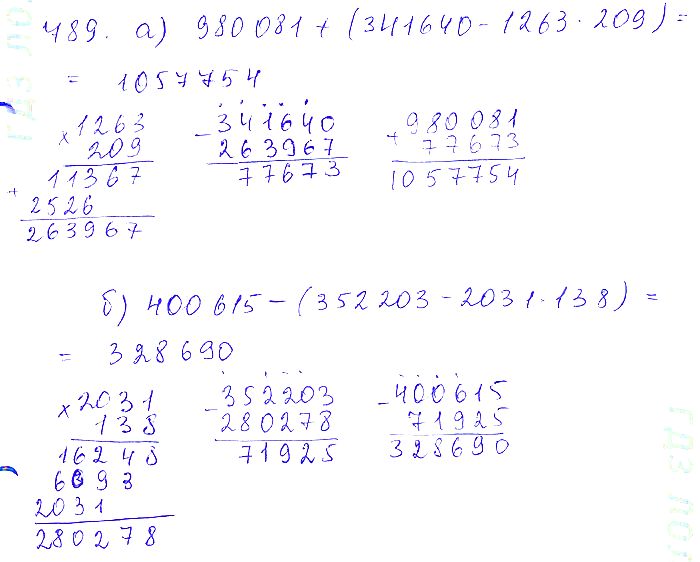 489. а) 980 081 + (341640 - 1263 · 209) =
= 1057754
× 1263
209
+ 11367
2526
263967
- 341640
263967
77673
+ 980 081
77673
1057754
б) 400 615 - (352 203 - 2031 · 138) =
= 328690
× 2031
138
16248
6093
2031
280278
- 352203
280278
71925
- 400615
71925
328690